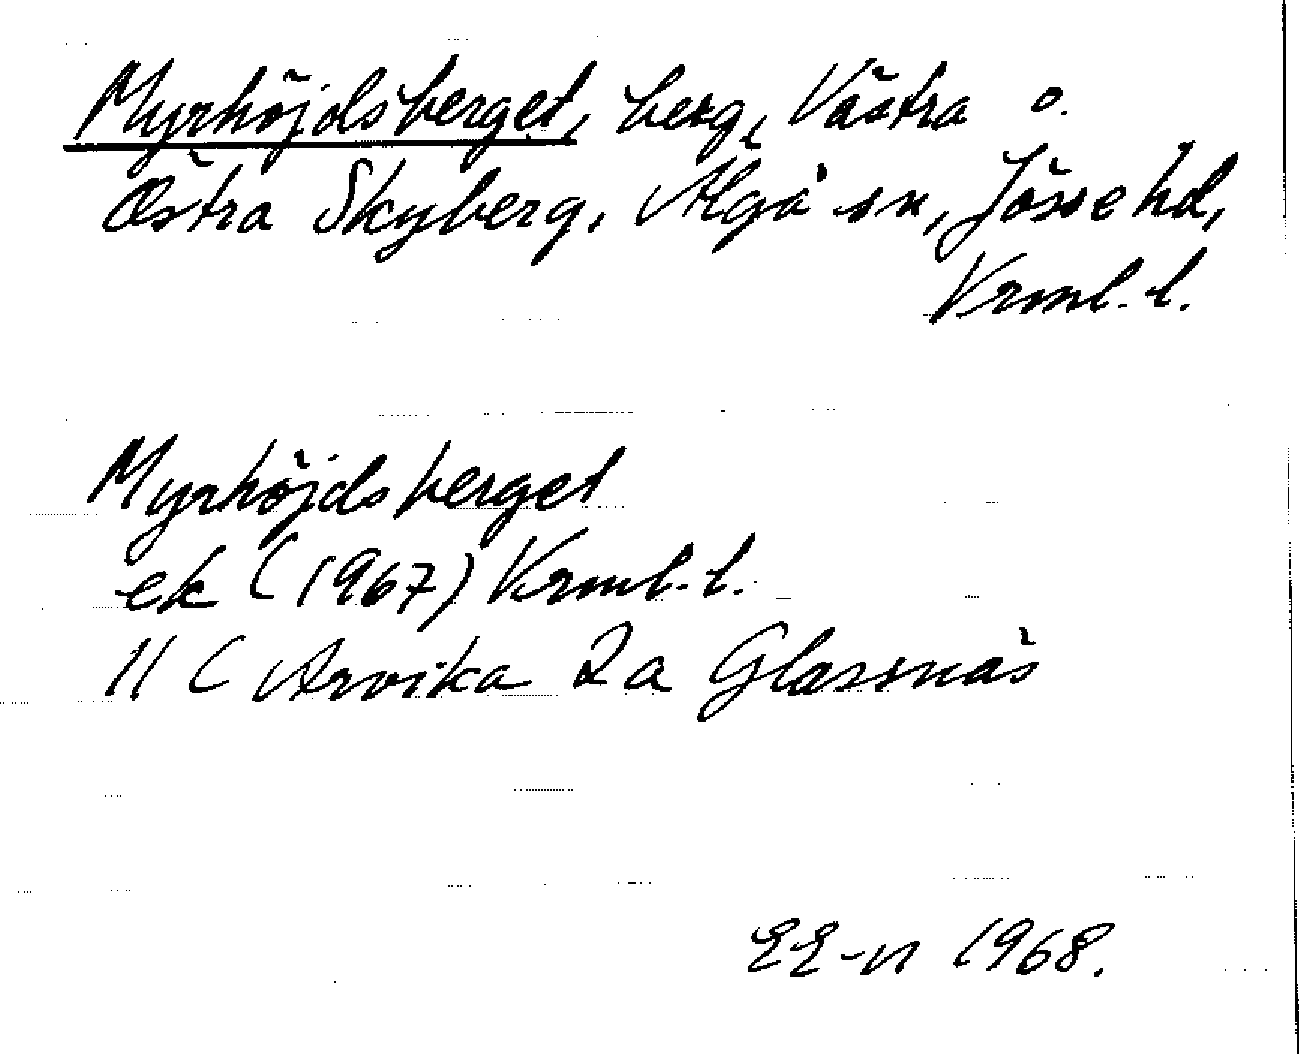 Myrhöjdsberget, berg, Västra o.
Östra Skyberg, Älgå sn, Jösse hd,
Vrml. l.
Myrhöjdsberget
ek (1967) Vrml. l.
11 C Arvika 2a Glassnäs
EE-n 1968.